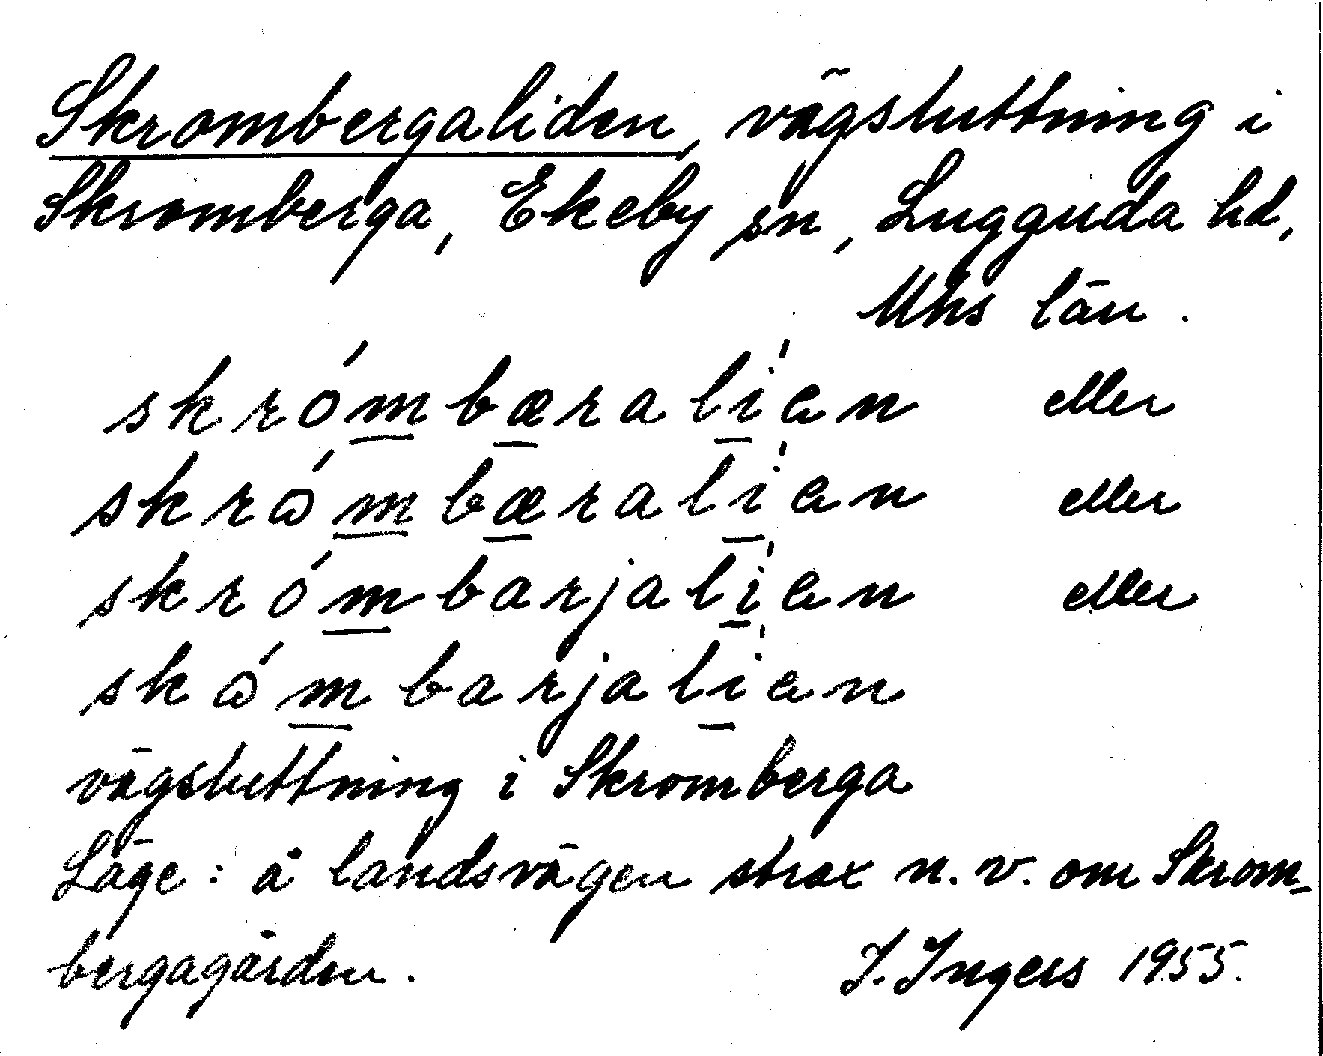 Skrombergaliden, vägsluttning i
Skromberga, Ekeby sn, Lugguda hd,
Mhs län.
skrómbæralíen eller
skrɷ́mbæralíen eller
skrómbarjalíen eller
skɷ́mbarjalíen
vägsluttning i Skromberga
Läge: å landsvägen strax n.v. om Skrom-
bergagården. I. Ingers 1955.